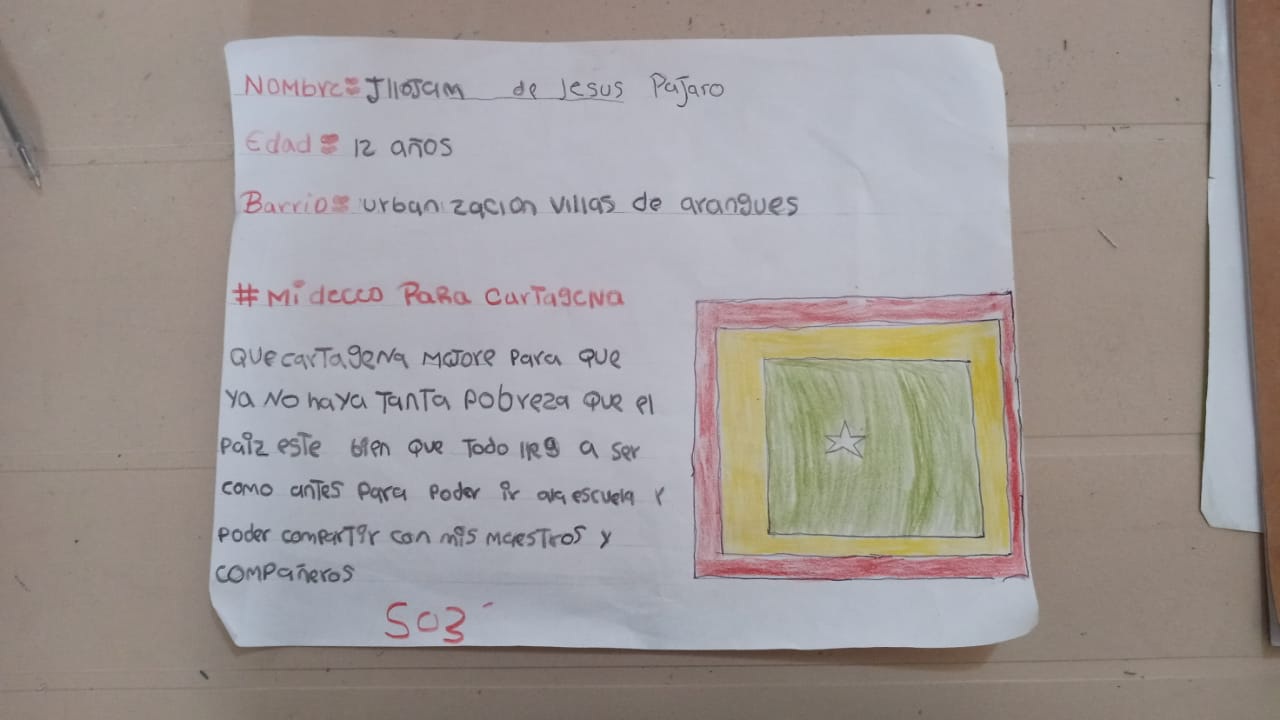 Nombre: Jllojam de Jesus Pajaro
Edad: 12 años
Barrio: urbanizacion villas de arangues
#Mi deceo Para Cartagena
Que cartagena mejore para que
ya no haya tanta pobreza que el
paiz este bien que todo a ser
como antes para poder ir ala escuela y
poder compartir con mis maestros y
compañeros
503